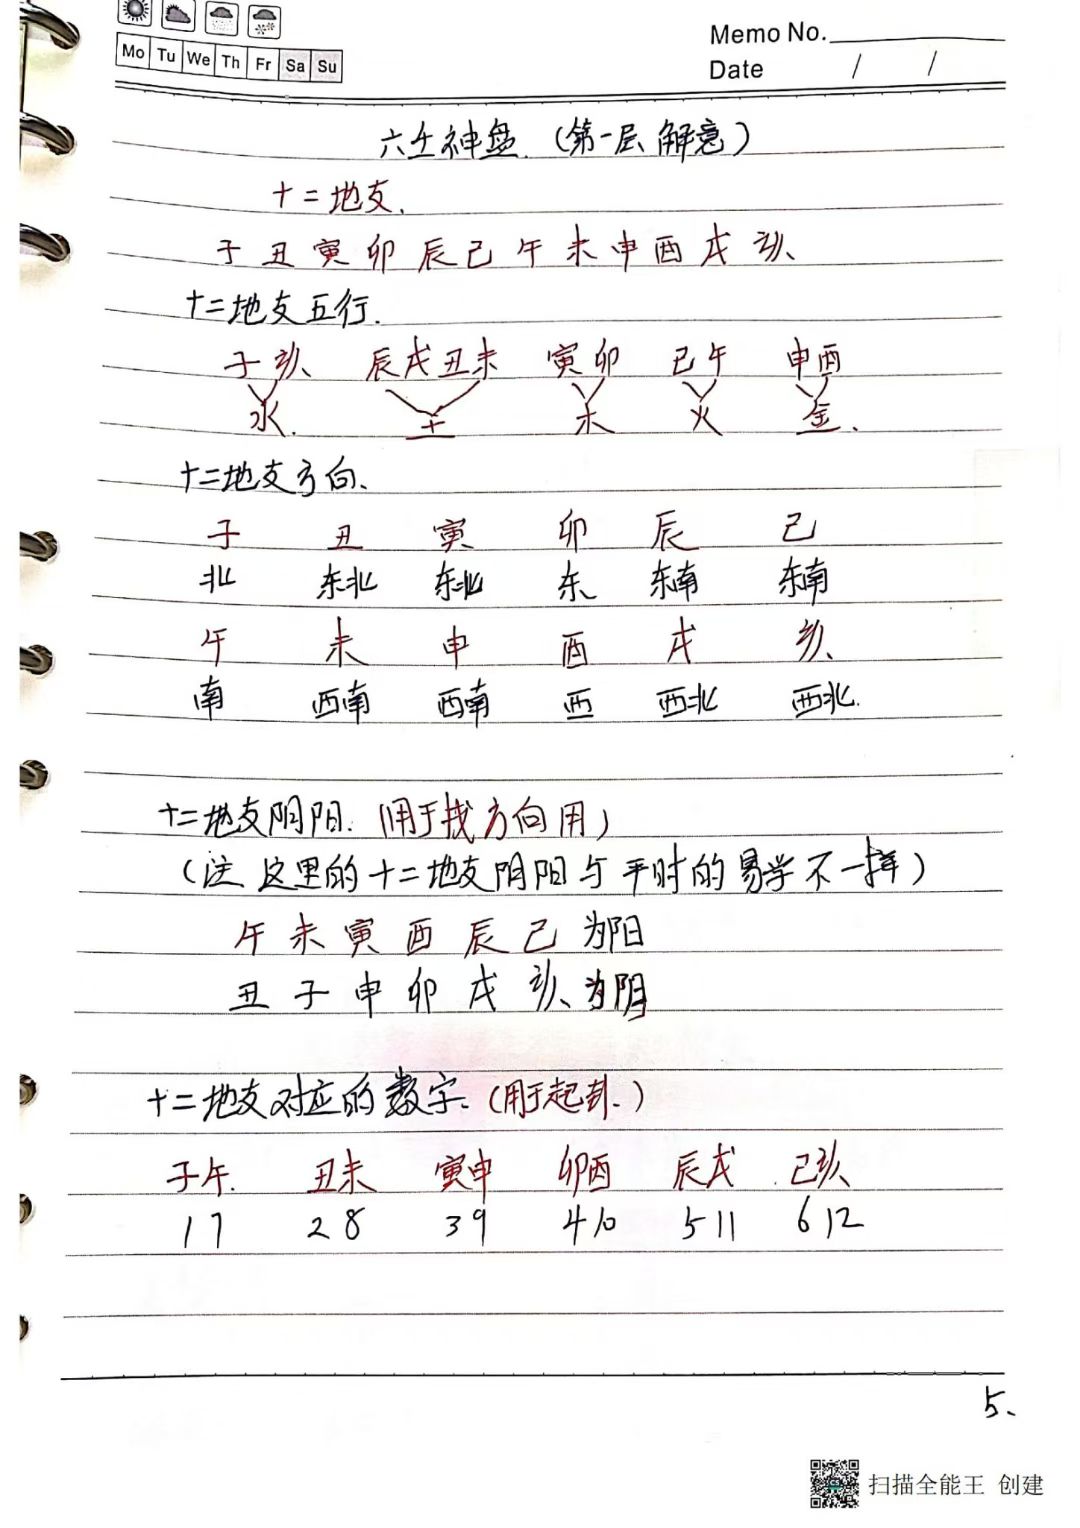 Memo No.
Mo Tu We Th Fr Sa Su
Date / /
六壬神盘（第一层解意）
十二地支、
子丑寅卯辰己午未申酉戌亥、
十二地支五行.
子亥 辰戌丑未 寅卯 己午 申酉
水. 土 木 火 金.
十二地支方向、
子 丑 寅 卯 辰 己
北 东北 东北 东 东南 东南
午 未 申 酉 戌 亥
南 西南 西南 西 西北 西北.
十二地支阴阳.（用于找方向用）
（注 这里的十二地支阴阳与平时的易学不一样）
午未寅酉辰己为阳
丑子申卯戌亥、为阴
十二地支对应的数字.（用于起卦.）
子午. 丑未 寅申 卯酉 辰戌 己亥
1 7 2 8 3 9 4 10 5 11 6 12
5、
扫描全能王 创建